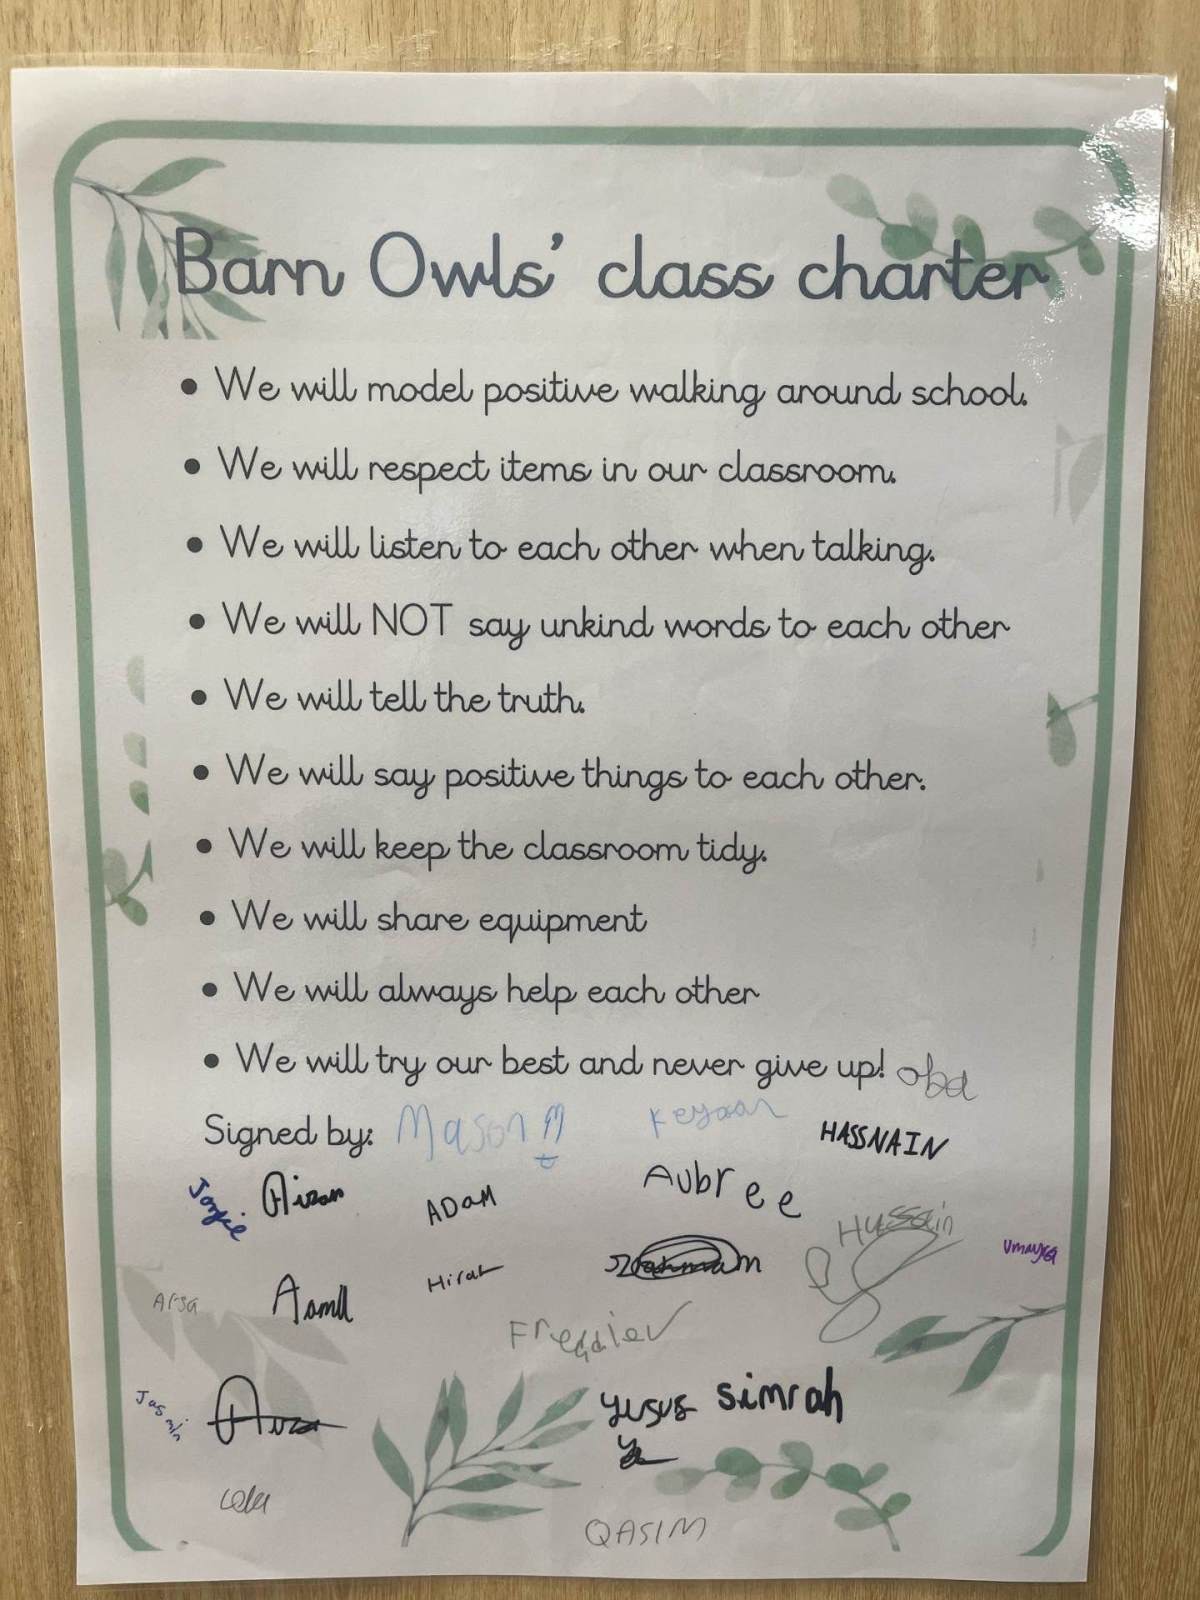 Barn Owls' class charter
• We will model positive walking around school.
• We will respect items in our classroom.
• We will listen to each other when talking.
• We will NOT say unkind words to each other
• We will tell the truth.
• We will say positive things to each other.
• We will keep the classroom tidy.
• We will share equipment
• We will always help each other
• We will try our best and never give up! oba
Signed by: Mason M
Keyaan
HASSNAIN
Aizan
ADAM
Aubree
Hussain
Umayza
Hirah
Arsa
Freddie
Jasmin
simrah
QASIM